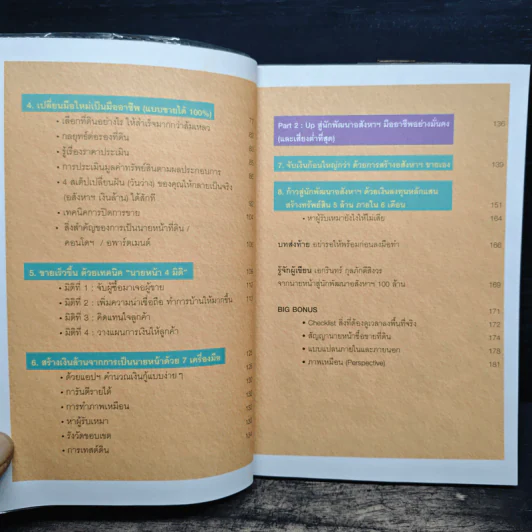 4. เปลี่ยนมือใหม่เป็นมืออาชีพ (แบบขายได้ 100%)
• เลือกที่ดินอย่างไร ให้สำเร็จมากกว่าล้มเหลว
• กลยุทธ์ต่อรองที่ดิน
• รู้เรื่องราคาประเมิน
• การประเมินมูลค่าทรัพย์สินตามผลประกอบการ
• 4 สเต็ปเปลี่ยนฝัน (วันว่าง) ของคุณให้กลายเป็นจริง
(อสังหาฯ เงินล้าน) ได้สักที
• เทคนิคการปิดการขาย
• สิ่งสำคัญของการเป็นนายหน้าที่ดิน /
คอนโดฯ / อพาร์ตเมนต์
5. ขายเร็วขึ้น ด้วยเทคนิค "นายหน้า 4 มิติ"
• มิติที่ 1 : จับผู้ซื้อมาเจอผู้ขาย
• มิติที่ 2 : เพิ่มความน่าเชื่อถือ ทำการบ้านให้มากขึ้น
• มิติที่ 3 : คิดแทนใจลูกค้า
• มิติที่ 4 : วางแผนการเงินให้ลูกค้า
6. สร้างเงินล้านจากการเป็นนายหน้าด้วย 7 เครื่องมือ
• ด้วยแอปฯ คำนวณเงินกู้แบบง่าย ๆ
• การันตีรายได้
• การทำภาพเหมือน
• หาผู้รับเหมา
• รังวัดขอบเขต
• การเทสต์ดิน
Part 2 : Up สู่นักพัฒนาอสังหาฯ มืออาชีพอย่างมั่นคง 136
(และเสี่ยงต่ำที่สุด)
7. จับเงินก้อนใหญ่กว่า ด้วยการสร้างอสังหาฯ ขายเอง 139
8. ก้าวสู่นักพัฒนาอสังหาฯ ด้วยเงินลงทุนหลักแสน
สร้างทรัพย์สิน 5 ล้าน ภายใน 6 เดือน 151
• หาผู้รับเหมายังไงให้ไม่เสีย 164
บทส่งท้าย อย่ารอให้พร้อมก่อนลงมือทำ 166
รู้จักผู้เขียน เอกรินทร์ กุลภักดีสิงวร
จากนายหน้าสู่นักพัฒนาอสังหาฯ 100 ล้าน 169
BIG BONUS 171
• Checklist สิ่งที่ต้องดูเวลาลงพื้นที่จริง 172
• สัญญานายหน้าซื้อขายที่ดิน 174
• แบบแปลนภายในและภายนอก 178
• ภาพเหมือน (Perspective) 181